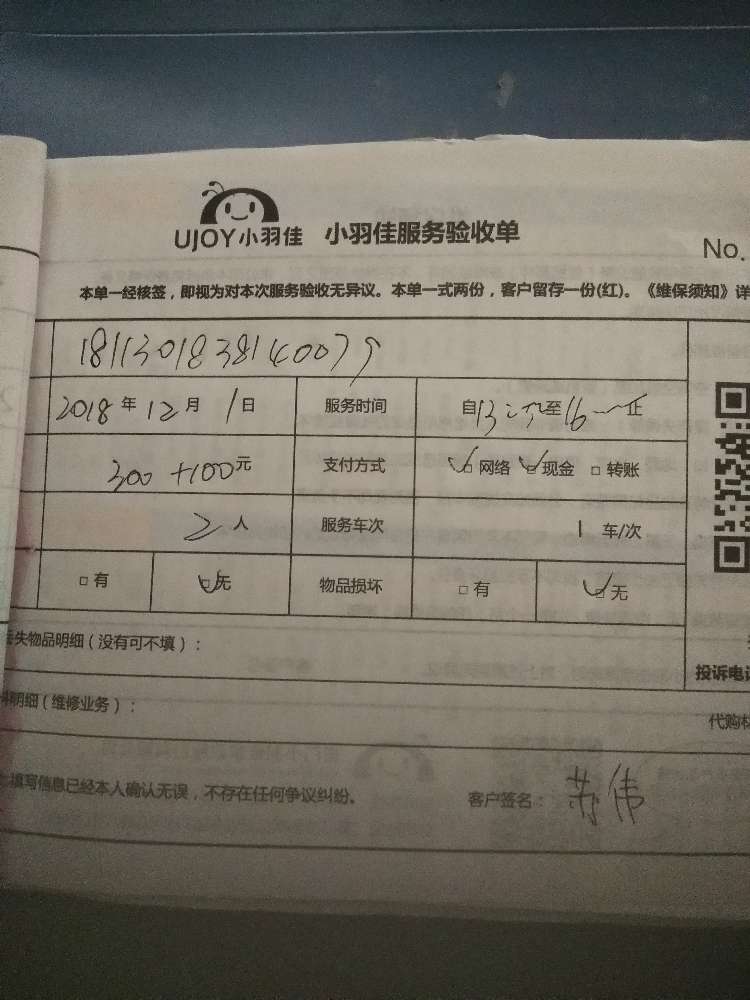 UJOY小羽佳 小羽佳服务验收单
No.
本单一经核签，即视为对本次服务验收无异议。本单一式两份，客户留存一份(红)。《维保须知》详
2018年12月1日 服务时间 自13:30至16
300+100元 支付方式 □网络 □现金 □转账
2人 服务车次 1车/次
□有 □无 物品损坏 □有 □无
丢失物品明细（没有可不填）：
投诉电话
明细（维修业务）：
代购材
填写信息已经本人确认无误，不存在任何争议纠纷。 客户签名：苏伟